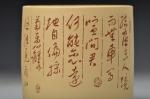 結廬在人境
而無車馬
喧問君
何能爾心遠
地自偏採
菊東籬